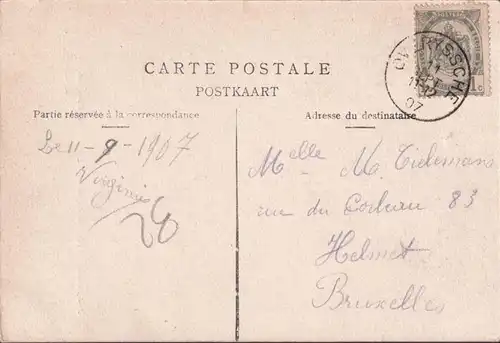 CARTE POSTALE
POSTKAART
Partie réservée à la correspondance
Adresse du destinataire
Le 11-9-1907
Virginie
26
Melle M. Tielemans
rue du Corbeau 83
Helmet
Bruxelles
OVERYSSCHE
11
07
1c